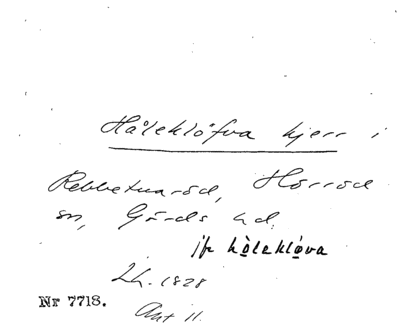 Håleklöfva kjerr i
Rebbetuaröd, Hörröd
sn, Gärds hd.
jfr hòleklòva
Lh. 1828
Nr 7718.
Akt 11.